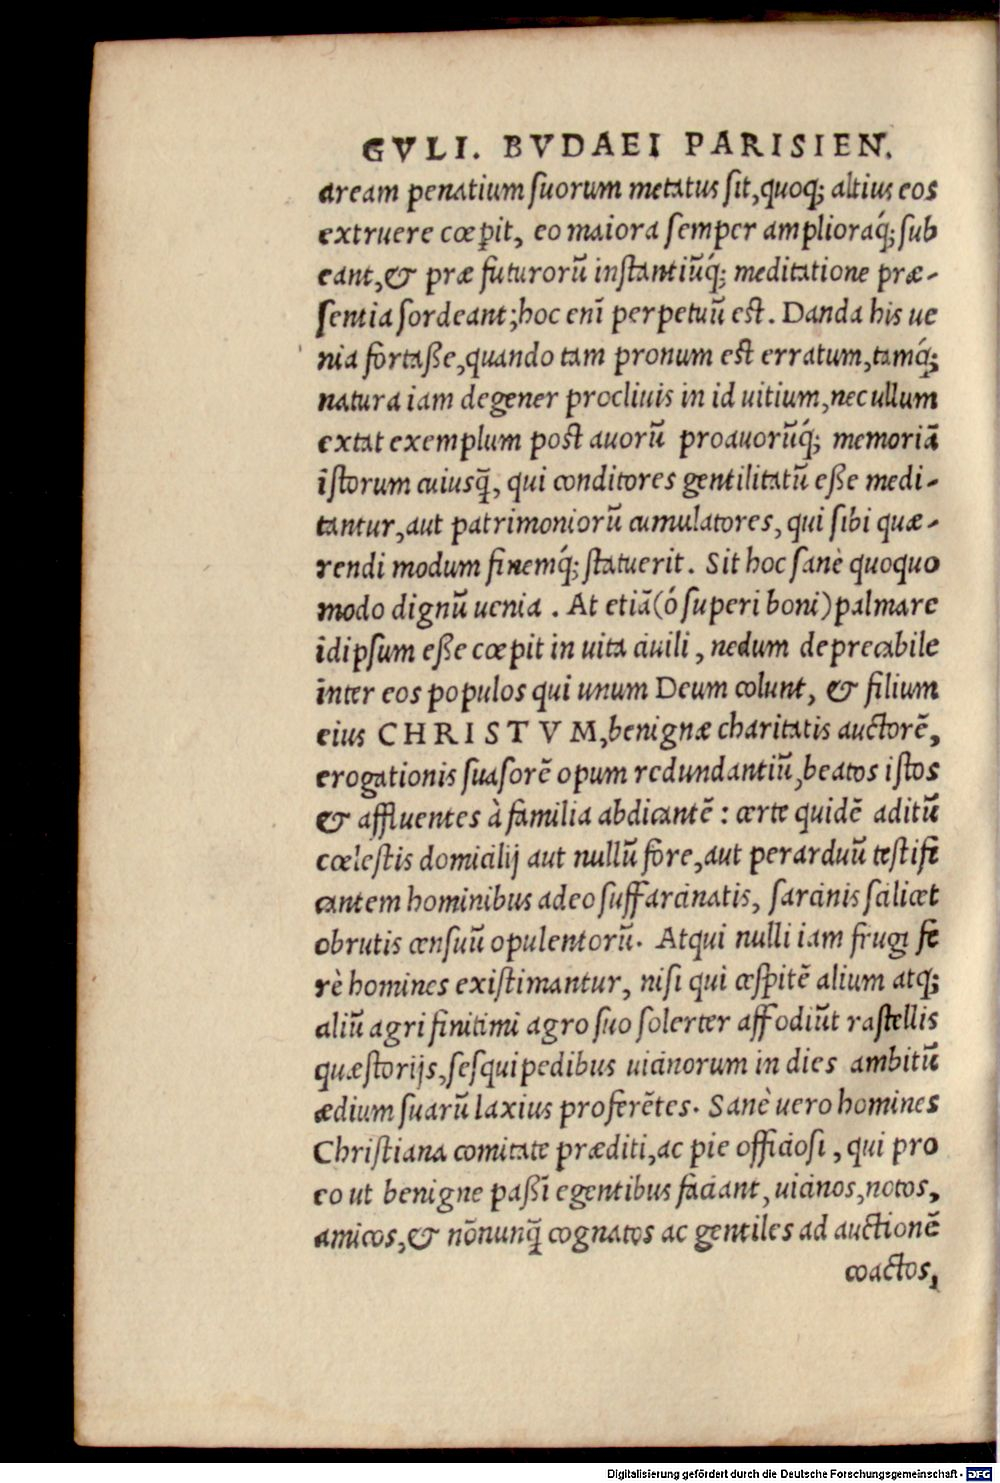 GVLI. BVDAEI PARISIEN.
aream penatium suorum metatus sit, quoq; altius eos
extruere cœpit, eo maiora semper amplioraq́; sub
eant, & præ futurorū instantiūq́; meditatione præ-
sentia sordeant; hoc enī perpetuū est. Danda his ue
nia fortaße, quando tam pronum est erratum, tamq́;
natura iam degener procliuis in id uitium, nec ullum
extat exemplum post auorū proauorūq́; memoriā
istorum cuiusq̄, qui conditores gentilitatū eße medi-
tantur, aut patrimoniorū cumulatores, qui sibi quæ-
rendi modum finemq́; statuerit. Sit hoc sanè quoquo
modo dignū uenia. At etiā (ó superi boni) palmare
idipsum eße cœpit in uita ciuili, nedum deprecabile
inter eos populos qui unum Deum colunt, & filium
eius CHRISTVM, benignæ charitatis auctorē,
erogationis suasorē opum redundantiū, beatos istos
& affluentes à familia abdicantē: certe quidē aditū
cœlestis domicilij aut nullū fore, aut perarduū testifi
cantem hominibus adeo suffarcinatis, sarcinis scilicet
obrutis censuū opulentorū. Atqui nulli iam frugi fe
rè homines existimantur, nisi qui cespitē alium atq;
aliū agri finitimi agro suo solerter affodiūt rastellis
quæstorijs, sesquipedibus uicinorum in dies ambitū
ædium suarū laxius proferētes. Sanè uero homines
Christiana comitate præditi, ac pie officiosi, qui pro
eo ut benigne paßī egentibus faciant, uicinos, notos,
amicos, & nōnunq̄ cognatos ac gentiles ad auctionē
coactos,
Digitalisierung gefördert durch die Deutsche Forschungsgemeinschaft - DFG